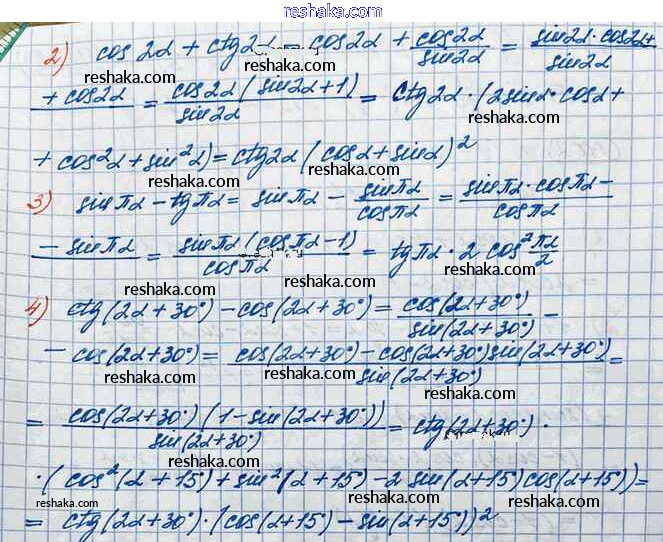 reshaka.com
2) cos2α + ctg2α = cos2α + cos2α/sin2α = sin2α·cos2α+
reshaka.com reshaka.com sin2α
+ cos2α = cos2α(sin2α+1)/sin2α = ctg2α·(2sinα·cosα+
reshaka.com reshaka.com
+ cos²α + sin²α) = ctg2α(cosα + sinα)²
reshaka.com reshaka.com
3) sinπα − tgπα = sinπα − sinπα/cosπα = sinπα·cosπα−
reshaka.com reshaka.com cosπα
− sinπα = sinπα(cosπα−1)/cosπα = tgπα·2cos²πα/2
reshaka.com reshaka.com
4) ctg(2α+30°) − cos(2α+30°) = cos(2α+30°)/sin(2α+30°) −
reshaka.com reshaka.com
− cos(2α+30°) = cos(2α+30°) − cos(2α+30°)sin(2α+30°)/sin(2α+30°) =
reshaka.com reshaka.com
= cos(2α+30°)(1−sin(2α+30°))/sin(2α+30°) = ctg(2α+30°)·
reshaka.com
·(cos²(α+15°)+sin²(α+15)−2sin(α+15)cos(α+15)) =
reshaka.com reshaka.com
= ctg(2α+30°)·(cos(α+15°) − sin(α+15))²
reshaka.com reshaka.com